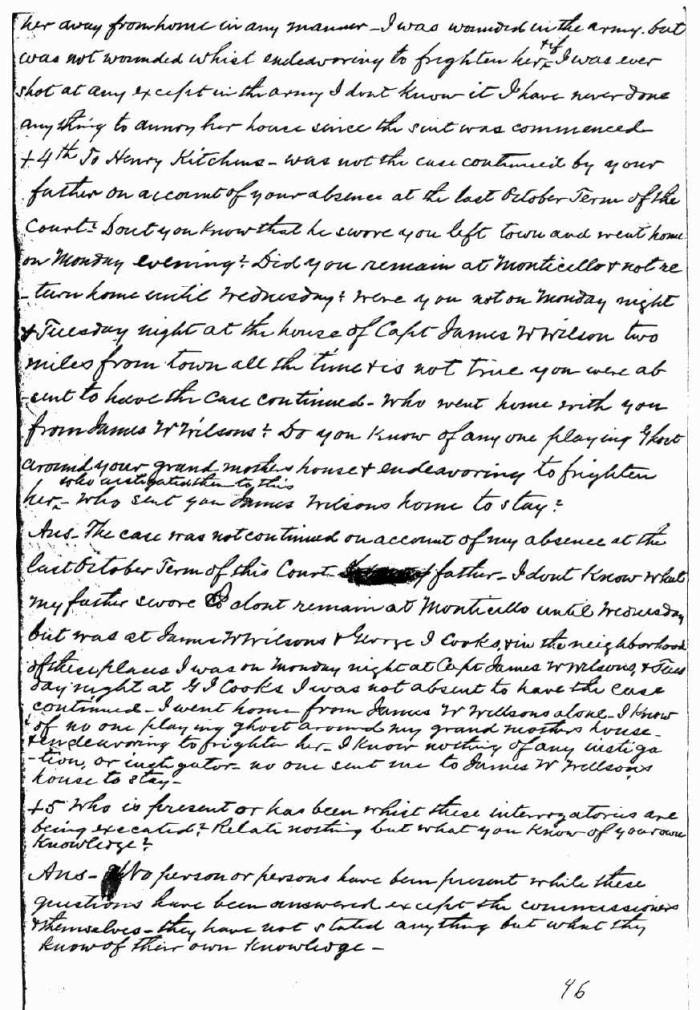 her away from home in any manner - I was wounded in the army but
was not wounded whist endeavoring to frighten her + if I was ever
shot at any except in the army I dont know it I have never done
any thing to annoy her house since the suit was commenced
+ 4th To Henry Kitchens - was not the case continued by your
father on account of your absence at the last October Term of the
Court? Dont you know that he swore you left town and went home
on Monday evening? Did you remain at Monticello & not re
-turn home until Wednesday? Were you not on Monday night
& Tuesday night at the house of Capt James W Wilson two
miles from town all the time & is not true you were ab
-sent to have the case continued - who went home with you
from James W Wilsons? Do you know of any one playing Ghost
around your grand mothers house & endeavoring to frighten
who instigated them to this
her - who sent you James Wilsons home to stay?
Ans - The case was not continued on account of my absence at the
last October Term of this Court father - I dont know what
my father swore I dont remain at Monticello until Wednesday
but was at James W Wilsons & George I Cooks, & in the neighborhood
of these places I was on Monday night at Capt James W Wilsons, & Tues
day night at G I Cooks I was not absent to have the case
continued - I went home from James W Willsons alone - I know
of no one playing ghost around my grand mothers house -
& endeavoring to frighten her - I know nothing of any instiga
-tion, or instigator no one sent me to James W Willsons
house to stay -
+5 Who is present or has been whist these interrogatories are
being executed? Relate nothing but what you know of your own
Knowledge?
Ans - No person or persons have been present while these
questions have been answered except the commissioners
& themselves - they have not stated anything but what they
know of their own knowledge -
46